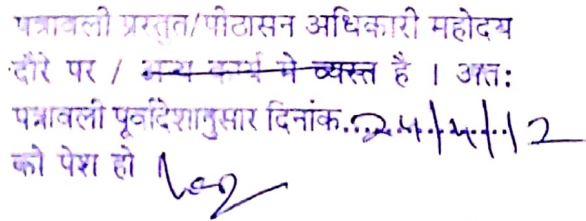 पत्रावली प्रस्तुत/पीठासन अधिकारी महोदय
दौरे पर / अन्य कार्य मे व्यस्त है । अतः
पत्रावली पूर्वादेशानुसार दिनांक..24/4/12
को पेश हो